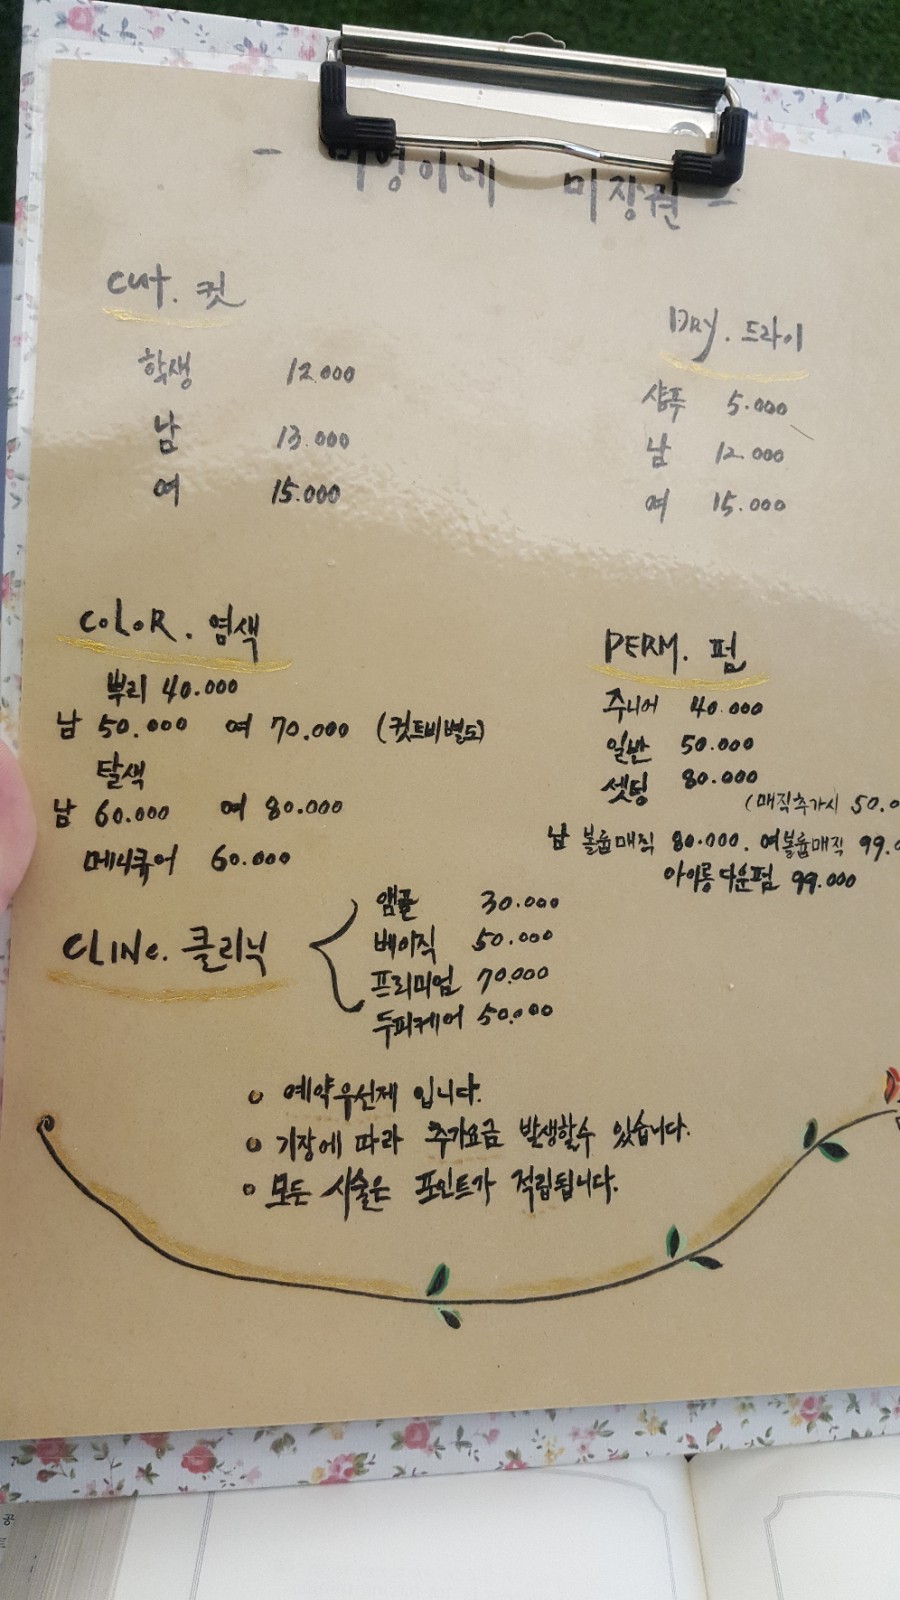 - 미영이네 미장권 -
Cut. 컷
학생 12.000
남 13.000
여 15.000
DRY. 드라이
샴푸 5.000
남 12.000
여 15.000
COLOR. 염색
뿌리 40.000
남 50.000 여 70.000 (컷트비별도)
탈색
남 60.000 여 80.000
메니큐어 60.000
PERM. 펌
주니어 40.000
일반 50.000
셋팅 80.000
(매직추가시 50.0
남 볼륨매직 80.000. 여볼륨매직 99.0
아이롱다운펌 99.000
CLINC. 클리닉
앰플 30.000
베이직 50.000
프리미엄 70.000
두피케어 50.000
예약우선제 입니다.
기장에 따라 추가요금 발생할수 있습니다.
모든 시술은 포인트가 적립됩니다.